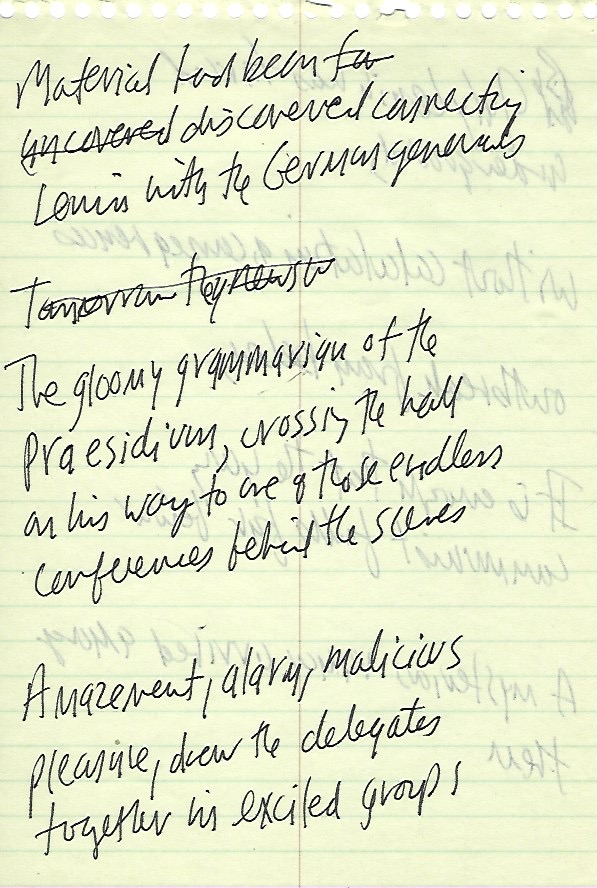 Material had been fo
uncovered discovered connecting
Louis with the German generals
Tomorrow the
The gloomy grammarian of the
Praesidium, crossing the hall
on his way to one of those endless
conferences behind the scenes
Amazement, alarm, malicious
pleasure, drew the delegates
together in excited groups